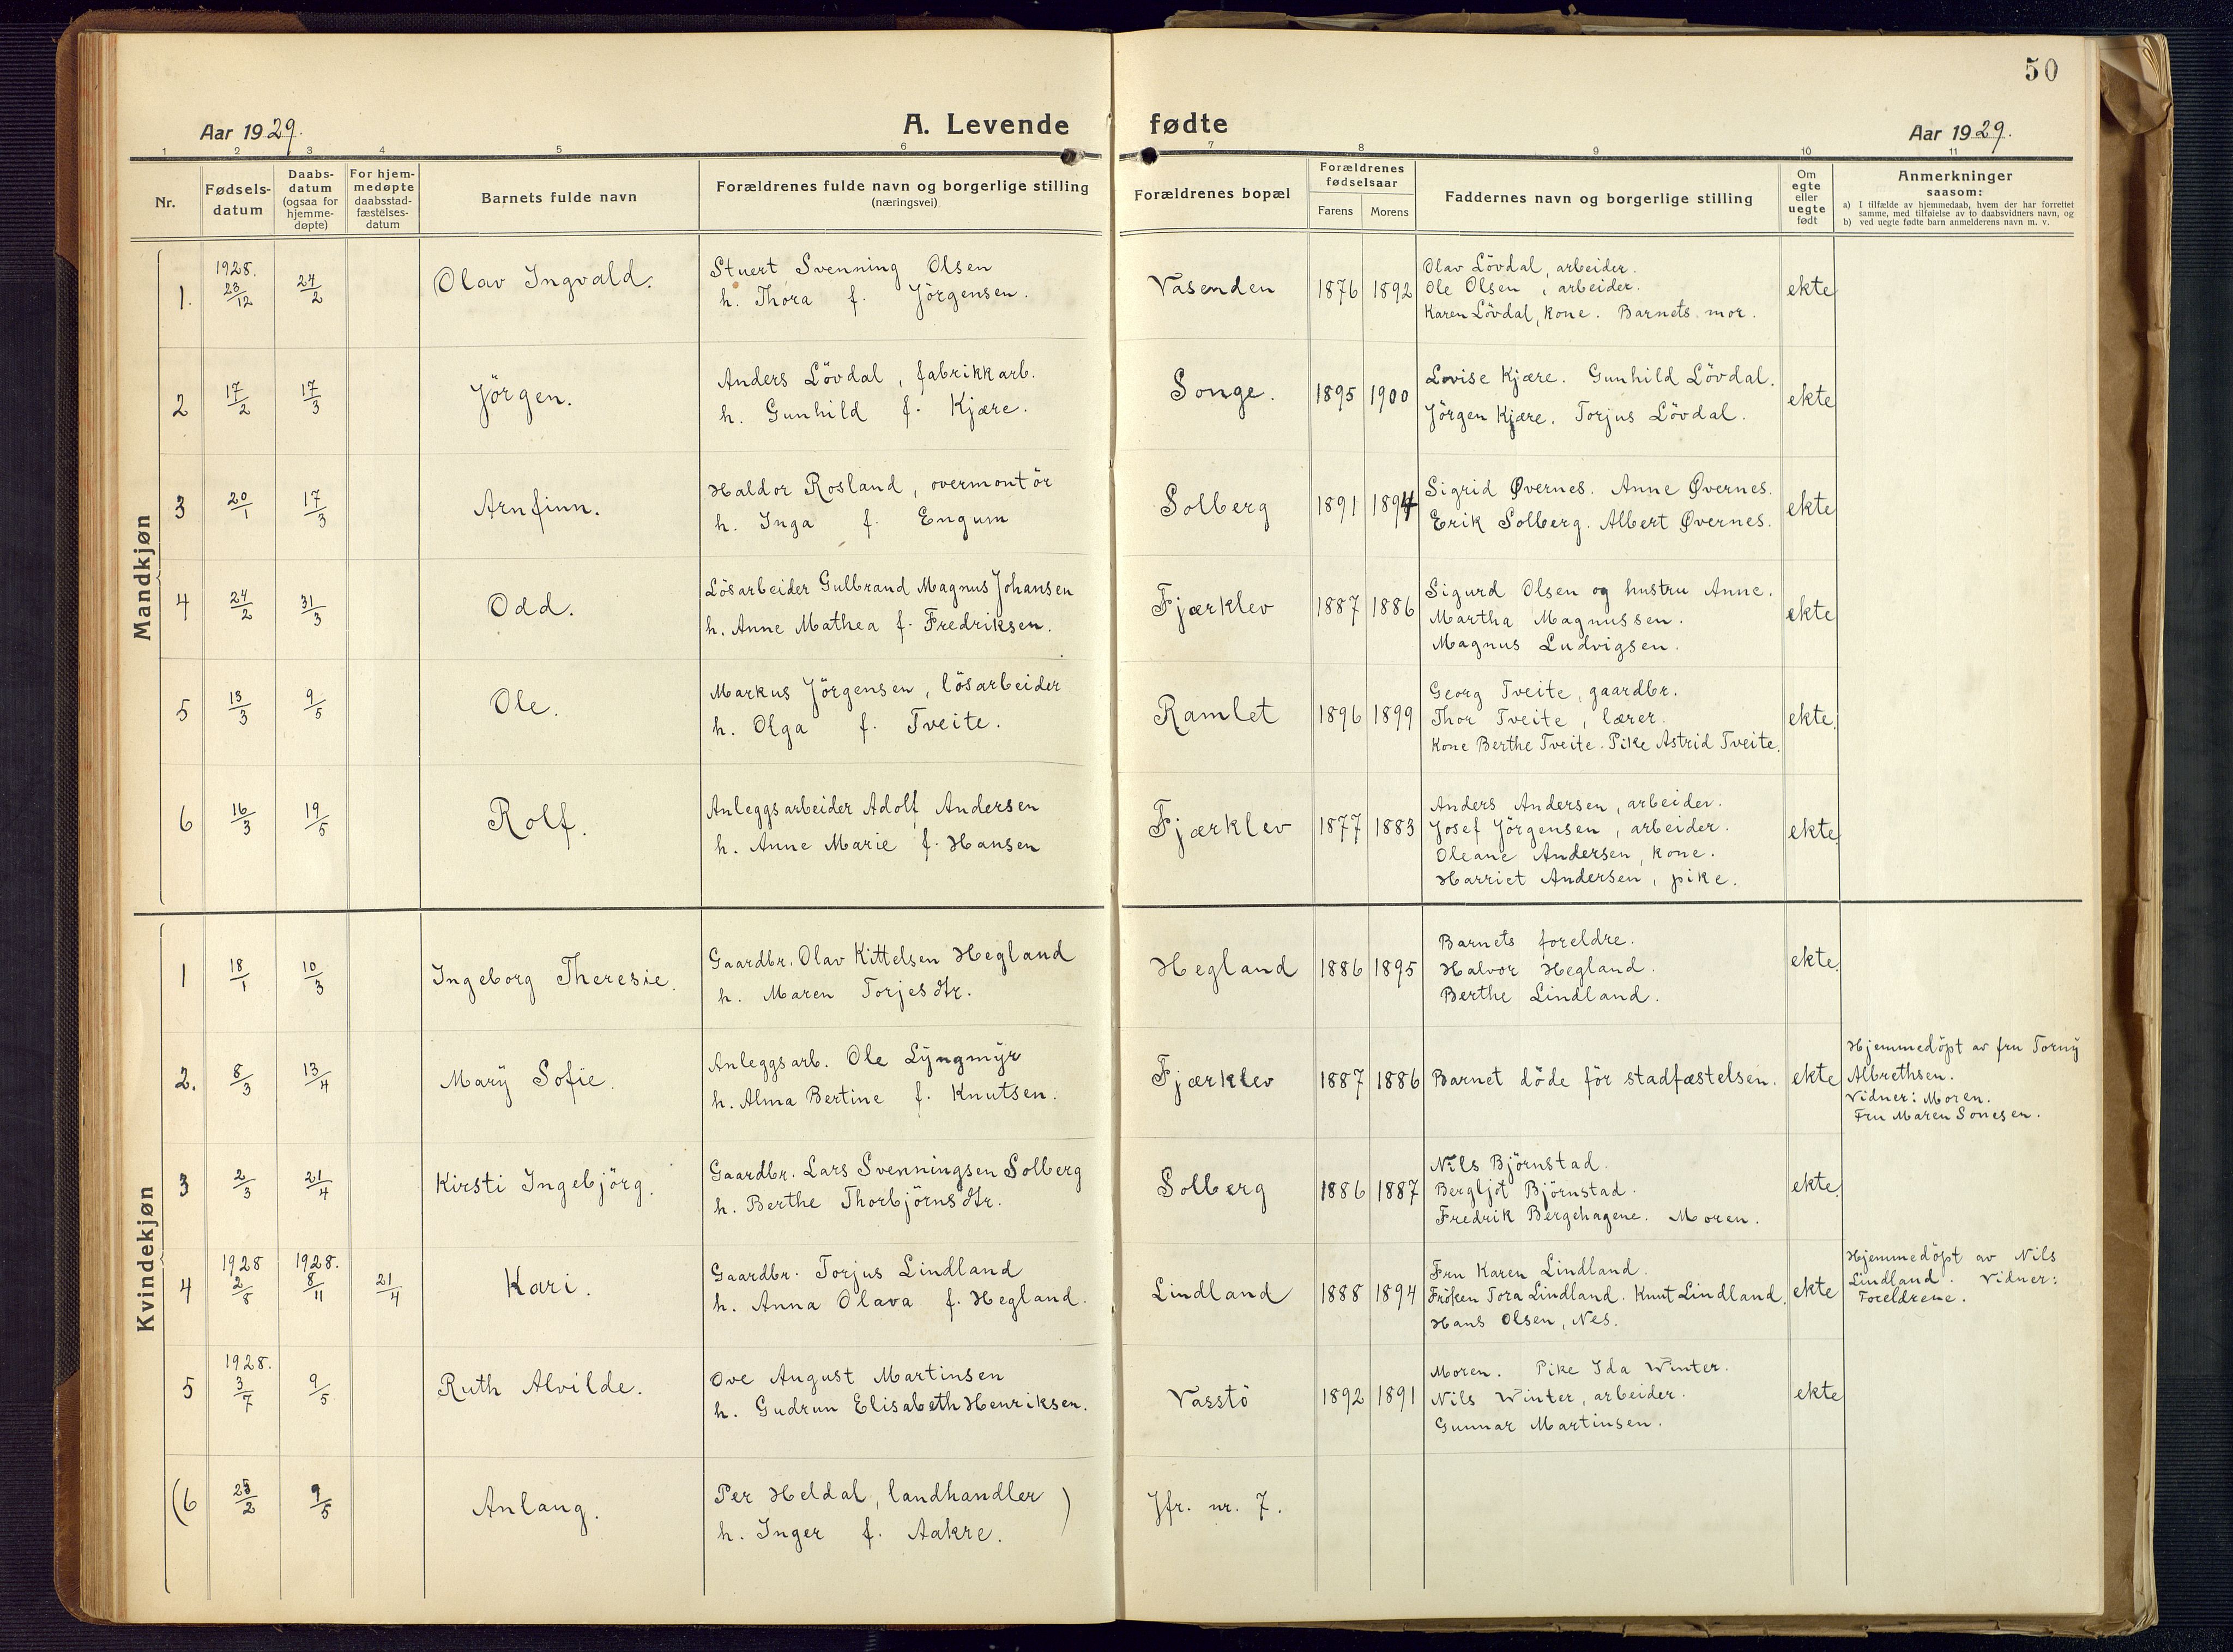 50
Aar 1929.
A. Levende fødte
Aar 1929.
1 2 3 4 5 6 7 8 9 10 11
Nr.
Fødsels-
datum
Daabs-
datum
(ogsaa for
hjemme-
døpte)
For hjem-
medøpte
daabsstad-
fæstelses-
datum
Barnets fulde navn
Forældrenes fulde navn og borgerlige stilling
(næringsvei)
Forældrenes bopæl
Forældrenes
fødselsaar
Farens Morens
Faddernes navn og borgerlige stilling
Om
egte
eller
uegte
født
Anmerkninger
saasom:
a) I tilfælde av hjemmedaab, hvem der har forrettet
samme, med tilføielse av to daabsvidners navn, og
b) ved uegte fødte barn anmelderens navn m. v.
Mandkjøn
1. 1928. 23/12 24/2 Olav Ingvald.
Stuert Svenning Olsen
h. Thora f. Jörgensen.
Vasenden 1876 1892
Olav Lövdal, arbeider.
Ole Olsen, arbeider.
Karen Lövdal, kone. Barnets mor.
ekte
2 17/2 17/3 Jörgen.
Anders Lövdal, fabrikkarb.
h. Gunhild f. Kjære.
Songe. 1895 1900
Lovise Kjære. Gunhild Lövdal.
Jörgen Kjære. Torjus Lövdal.
ekte
3 20/1 17/3 Arnfinn.
Haldor Rosland, overmontör
h. Inga f. Engum
Solberg 1891 1894
Sigrid Øvernes. Anne Øvernes.
Erik Solberg. Albert Øvernes.
ekte
4 24/2 31/3 Odd.
Lösarbeider Gulbrand Magnus Johansen
h. Anne Mathea f. Fredriksen.
Fjærklev 1887 1886
Sigurd Olsen og hustru Anne.
Martha Magnussen.
Magnus Ludvigsen.
ekte
5 13/3 9/5 Ole.
Markus Jörgensen, lösarbeider
h. Olga f. Tveite.
Ramlet 1896 1899
Georg Tveite, gaardbr.
Thor Tveite, lærer.
Kone Berthe Tveite. Pike Astrid Tveite.
ekte
6 16/3 19/5 Rolf.
Anleggsarbeider Adolf Andersen
h. Anne Marie f. Hansen
Fjærklev 1877 1883
Anders Andersen, arbeider.
Josef Jörgensen, arbeider.
Oleane Andersen, kone.
Harriet Andersen, pike.
ekte
Kvindekjøn
1 18/1 10/3 Ingeborg Theresie.
Gaardbr. Olav Kittelsen Hegland
h. Maren Torjesdtr.
Hegland 1886 1895
Barnets foreldre.
Halvor Hegland.
Berthe Lindland.
ekte
2. 8/3 13/4 Marÿ Sofie.
Anleggsarb. Ole Lÿngmÿr
h. Alma Bertine f. Knutsen.
Fjærklev 1887 1886 Barnet döde för stadfæstelsen. ekte
Hjemmedöpt av fru Tornÿ
Albrethsen.
Vidner: Moren.
Fru Maren Sonesen.
3 2/3 21/4 Kirsti Ingebjörg.
Gaardbr. Lars Svenningsen Solberg
h. Berthe Thorbjörnsdtr.
Solberg 1886 1887
Nils Björnstad.
Bergljot Björnstad.
Fredrik Bergehagene. Moren.
ekte
4 1928 2/8 1928. 8/11 21/4 Kari.
Gaardbr. Torjus Lindland
h. Anna Olava f. Hegland.
Lindland 1888 1894
Fru Karen Lindland.
Fröken Tora Lindland. Knut Lindland.
Hans Olsen, Nes.
ekte
Hjemmedöpt av Nils
Lindland. Vidner:
Foreldrene.
5 1928. 3/7 9/5 Ruth Alvilde.
Ove August Martinsen
h. Gudrun Elisabeth Henriksen.
Vasstö 1892 1891
Moren. Pike Ida Winter.
Nils Winter, arbeider.
Gunnar Martinsen.
ekte
(6 25/2 9/5 Anlaug.
Per Heldal, landhandler )
h. Inger f. Aakre.
Jfr. nr. 7.